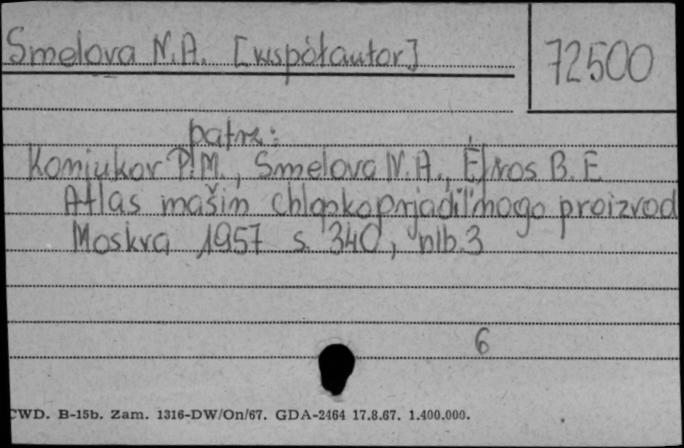 Smelova N.A. [współautor]
72500
patrz:
Konjukov P.M., Smelova N.A., Èfros B.E
Atlas mašin chlopkoprjadil'nogo proizvod
Moskva 1957 s. 340, nlb.3
6
CWD. B-15b. Zam. 1316-DW/On/67. GDA-2464 17.8.67. 1.400.000.